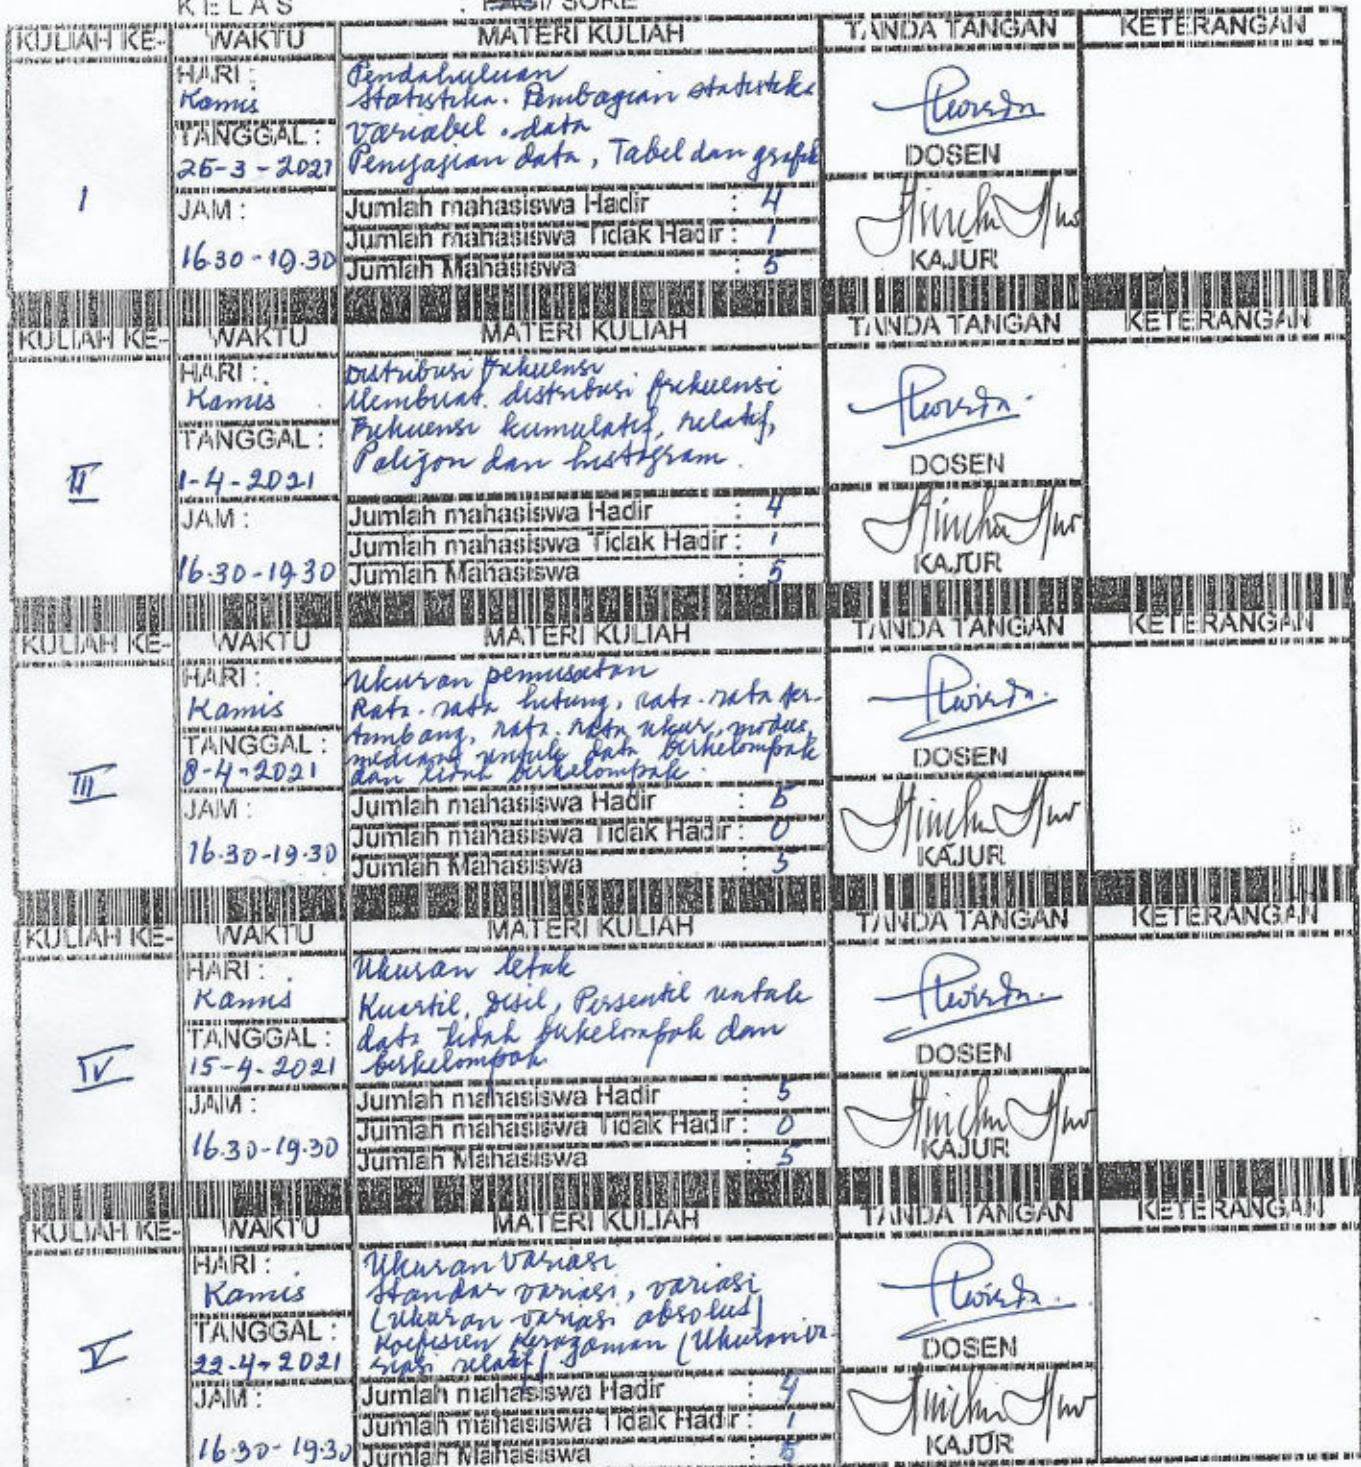 KELAS : PAGI/ SORE
KULIAH KE- WAKTU MATERI KULIAH TANDA TANGAN KETERANGAN
I
HARI :
Kamis
TANGGAL :
25-3-2021
JAM :
16.30-19.30
Pendahuluan
Statistika. Pembagian statistika
Variabel . data
Penyajian data, Tabel dan grafik
Jumlah mahasiswa Hadir : 4
Jumlah mahasiswa Tidak Hadir : 1
Jumlah Mahasiswa : 5
DOSEN
KAJUR
KULIAH KE- WAKTU MATERI KULIAH TANDA TANGAN KETERANGAN
II
HARI :
Kamis
TANGGAL :
1-4-2021
JAM :
16.30-19.30
Distribusi frekuensi
Membuat distribusi frekuensi
Frekuensi kumulatif, relatif,
Poligon dan histogram.
Jumlah mahasiswa Hadir : 4
Jumlah mahasiswa Tidak Hadir : 1
Jumlah Mahasiswa : 5
DOSEN
KAJUR
KULIAH KE- WAKTU MATERI KULIAH TANDA TANGAN KETERANGAN
III
HARI :
Kamis
TANGGAL :
8-4-2021
JAM :
16.30-19.30
Ukuran pemusatan
Rata-rata hitung, rata-rata ter-
timbang, rata-rata ukur, modus,
median untuk data berkelompok
dan tidak berkelompok.
Jumlah mahasiswa Hadir : 5
Jumlah mahasiswa Tidak Hadir : 0
Jumlah Mahasiswa : 5
DOSEN
KAJUR
KULIAH KE- WAKTU MATERI KULIAH TANDA TANGAN KETERANGAN
IV
HARI :
Kamis
TANGGAL :
15-4-2021
JAM :
16.30-19.30
Ukuran letak
Kuartil, Desil, Persentil untuk
data tidak berkelompok dan
berkelompok
Jumlah mahasiswa Hadir : 5
Jumlah mahasiswa Tidak Hadir : 0
Jumlah Mahasiswa : 5
DOSEN
KAJUR
KULIAH KE- WAKTU MATERI KULIAH TANDA TANGAN KETERANGAN
V
HARI :
Kamis
TANGGAL :
22-4-2021
JAM :
16.30-19.30
Ukuran variasi
Standar variasi, variasi
(Ukuran variasi absolut)
Koefisien Keragaman (Ukuran va-
riasi relatif)
Jumlah mahasiswa Hadir : 4
Jumlah mahasiswa Tidak Hadir : 1
Jumlah Mahasiswa : 5
DOSEN
KAJUR